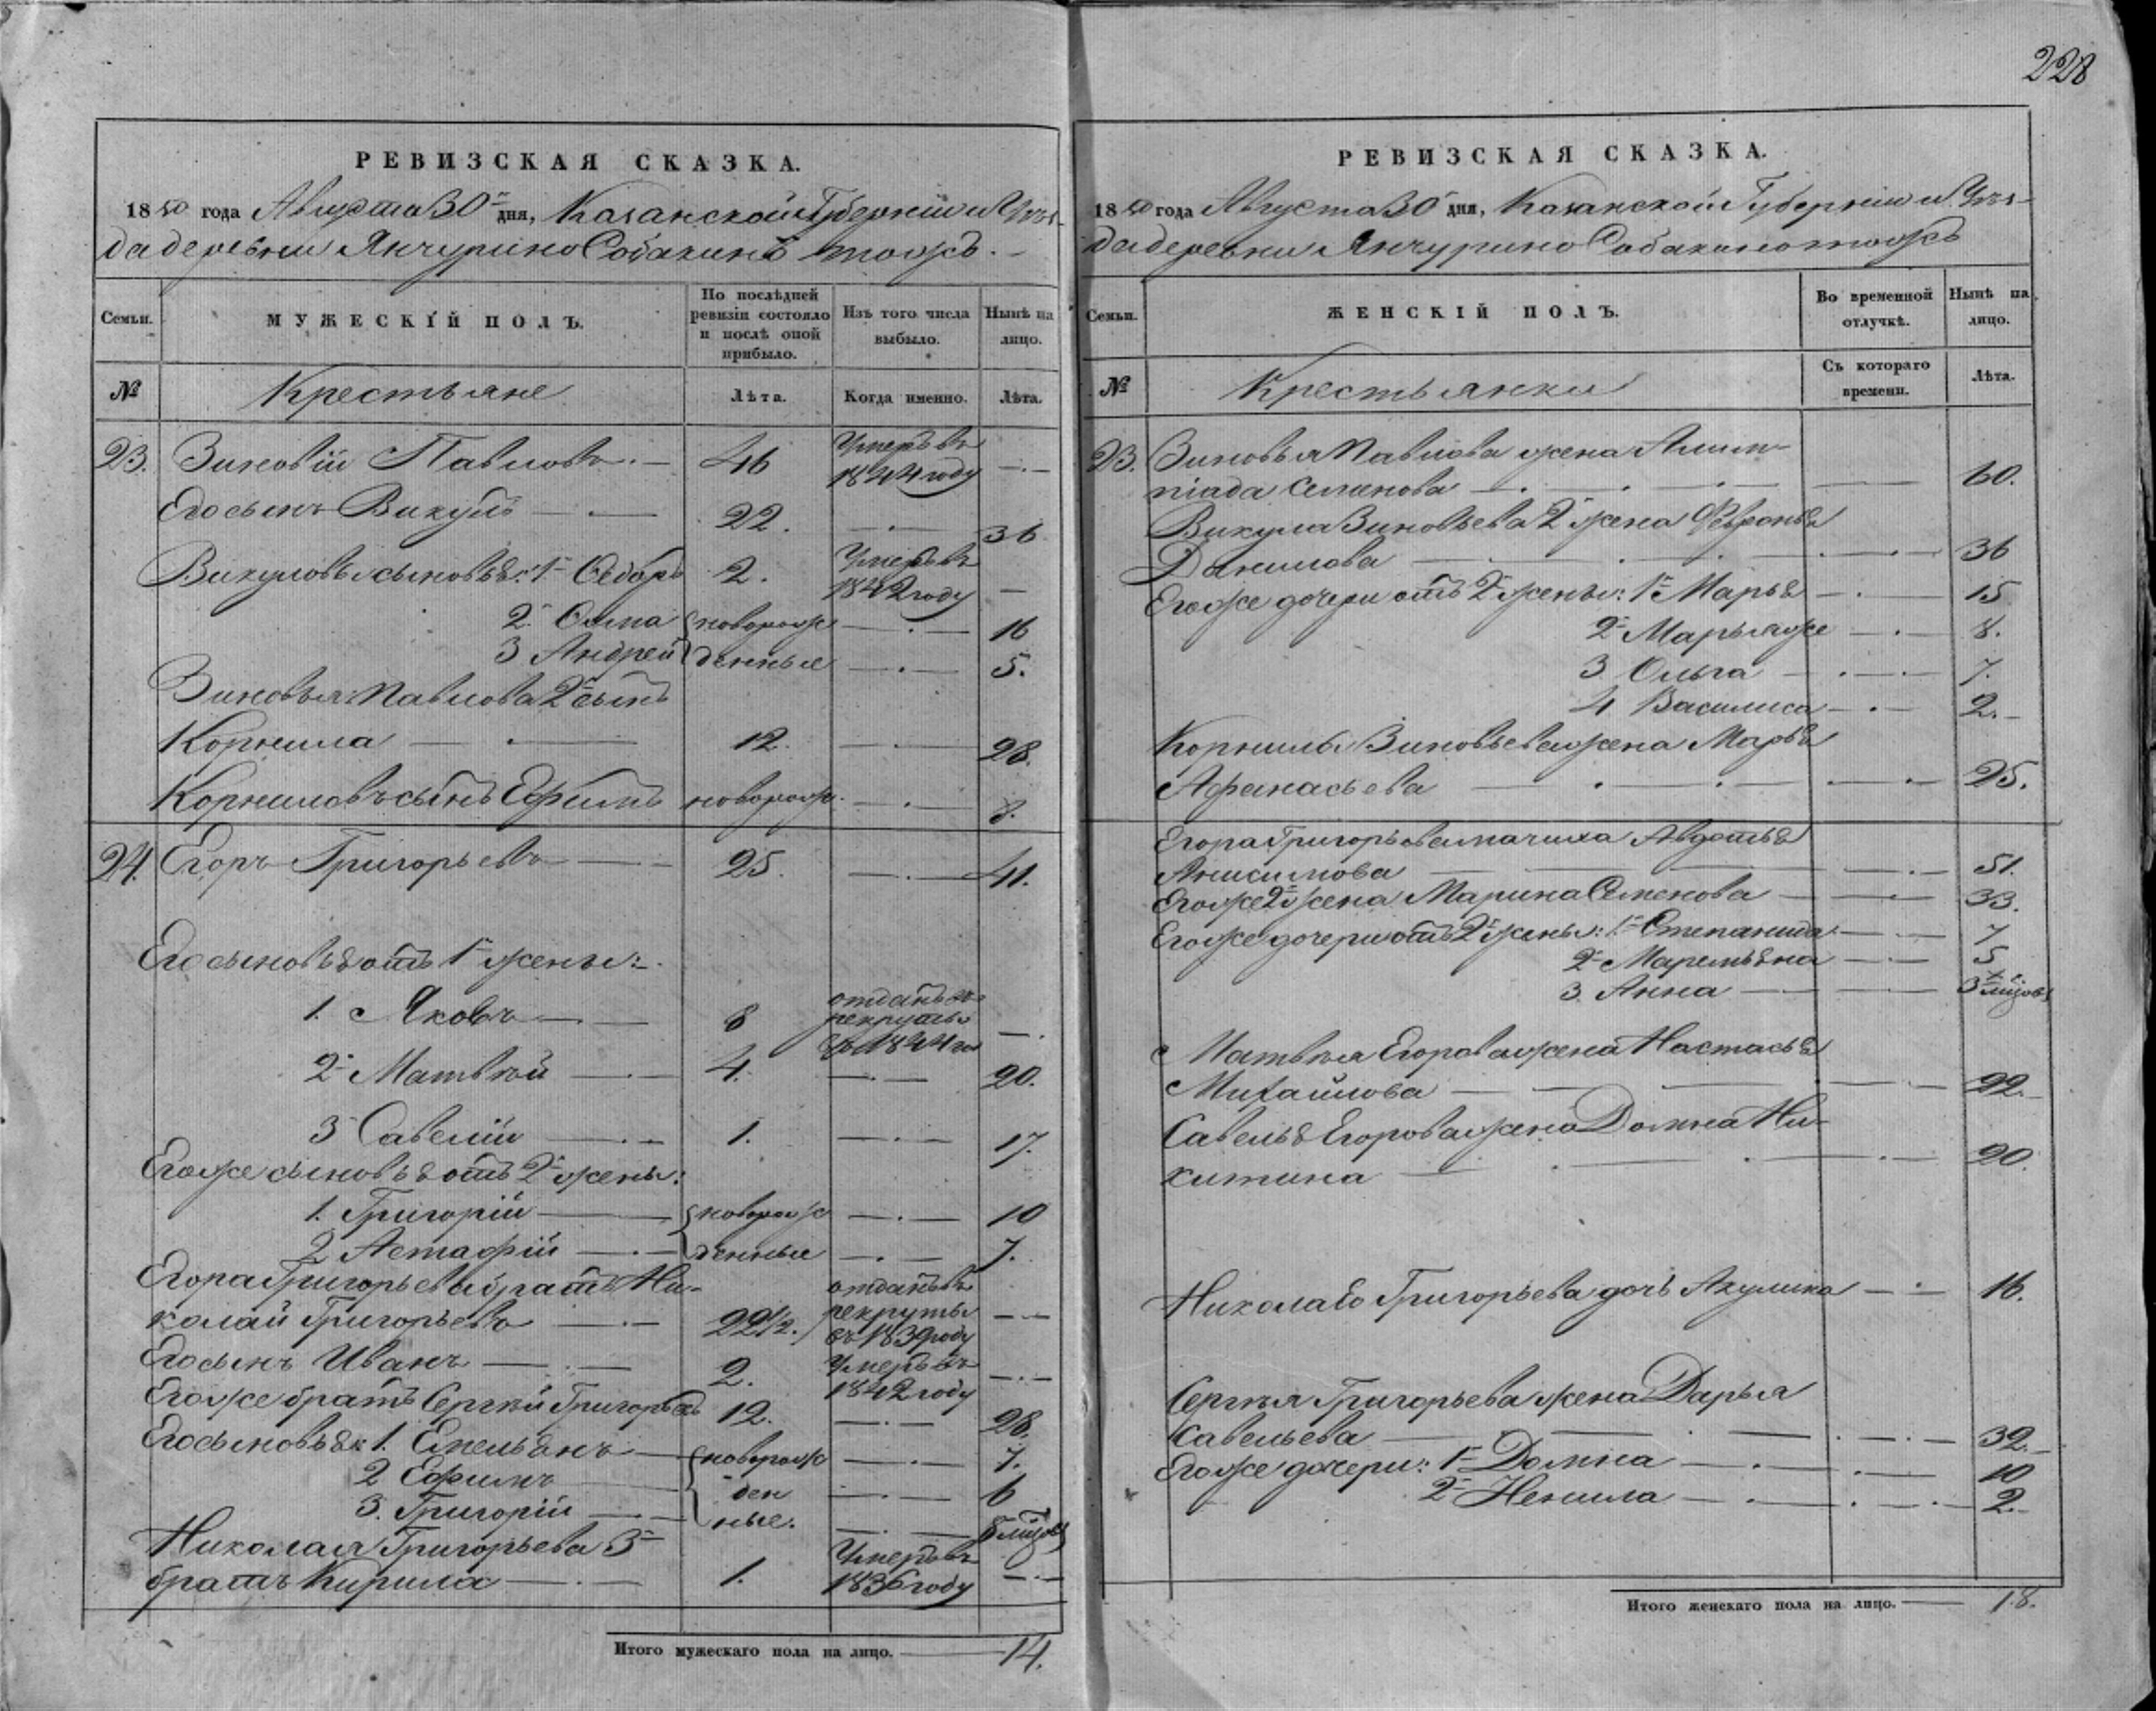 228
РЕВИЗСКАЯ СКАЗКА.
1850 года Августа 30 дня, Казанской Губернiи и Уѣз-
да деревни Янчурино Собакино тожъ.
Семьи.
МУЖЕСКIЙ ПОЛЪ.
По послѣдней ревизiи состояло и послѣ оной прибыло.
Изъ того числа выбыло.
Нынѣ на лицо.
№
Крестьяне
Лѣта.
Когда именно.
Лѣта.
23. Зиновiй Павловъ 46 Умеръ въ 1844 году
Его сынъ Викулъ 22. 36
Викуловы сыновья: 1й Ѳедоръ 2. Умеръ въ 1842 году
2. Ѳома новорож 16
3 Андрей денные 5.
Зиновья Павлова 2й сынъ
Корнила 12. 28.
Корниловъ сынъ Ефимъ новорож. 8.
24. Егоръ Григорьевъ 25. 41.
Его сыновья отъ 1й жены:
1. Яковъ 8 отданъ въ рекруты въ 1844 го
2й Матвѣй 4. 20.
3й Савелiй 1. 17.
Его же сыновья отъ 2й жены:
1. Григорiй новорож 10
2 Астафiй денные 7.
Егора Григорьева братъ Ни-
колай Григорьевъ 22 1/2. отданъ въ рекруты въ 1839 году
Его сынъ Иванъ 2. Умеръ въ 1842 году
Его же братъ Сергѣй Григорьевъ 12. 28.
Его сыновья: 1. Емельянъ новорож 7.
2 Ефимъ ден 6
3. Григорiй ные.
Николая Григорьева 3й
братъ Кирила 1. Умеръ въ 1836 году
Итого мужескаго пола на лицо. 14.
РЕВИЗСКАЯ СКАЗКА.
1850 года Августа 30 дня, Казанской Губернiи и Уѣз-
да деревни Янчурино Собакино тожъ
Семьи.
ЖЕНСКIЙ ПОЛЪ.
Во временной отлучкѣ.
Нынѣ на лицо.
№
Крестьянки
Съ котораго времени.
Лѣта.
23. Зиновья Павлова жена Алим-
пiада Семенова 60.
Викула Зиновьева 2я жена Февронья
Данилова 36
Его же дочери отъ 2й жены: 1я Марья 15
2я Марья же 8.
3 Ольга 7.
4 Василиса 2.
Корнилы Зиновьева жена Марья
Афанасьева 25.
Егора Григорьева мачиха Авдотья
Анисимова 51.
Его же 2я жена Марина Семенова 33.
Его же дочери отъ 2й жены: 1я Степанида 7
2я Маремьяна 5
3. Анна
Матвѣя Егорова жена Настасья
Михайлова 22.
Савелья Егорова жена Домна Ни-
китина 20.
Николая Григорьева дочь Акулина 16.
Сергѣя Григорьева жена Дарья
Савельева 32.
Его же дочери: 1я Домна 10
2я Ненила 2.
Итого женскаго пола на лицо. 18.